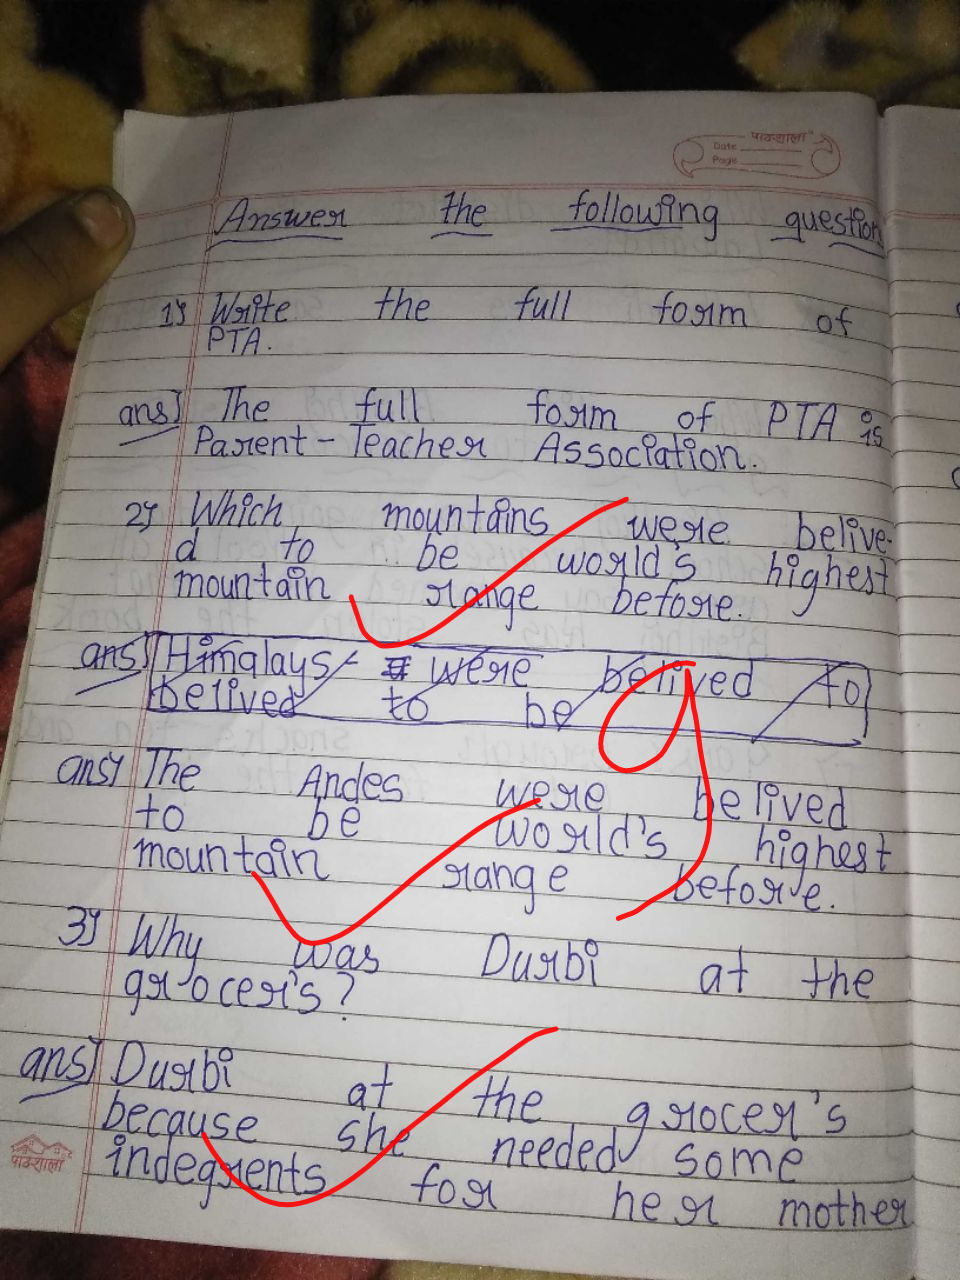 पाठशाला
Date
Page
Answer the following question
1) Write the full form of
PTA.
ans) The full form of PTA is
Parent-Teacher Association.
2) Which mountains were belive-
d to be world's highest
mountain range before.
ans) Himalays were belived to
belived to be
ans) The Andes were belived
to be world's highest
mountain range before.
3) Why was Durbi at the
grocer's?
ans) Durbi at the grocer's
because she needed some
indegrents for her mother
पाठशाला